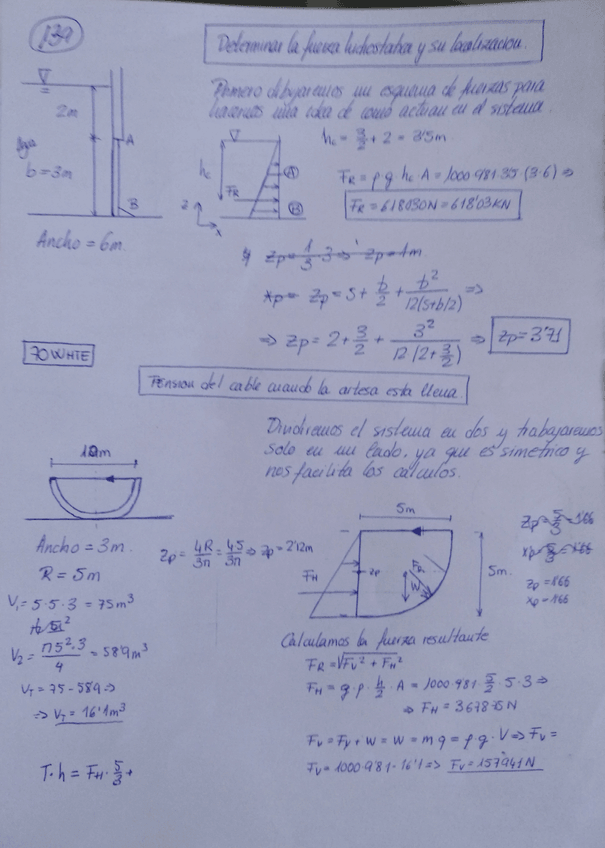 139
Determinar la fuerza hidrostatica y su localizacion.
Primero dibujaremos un esquema de fuerzas para
hacernos una idea de como actuan en el sistema.
2m
Agua
b=3m
A
B
Ancho = 6m.
hc
FR
z
x
A
B
hc = 3/2 + 2 = 3'5m.
FR = ρ g hc · A = 1000·9'81·3'5·(3·6) ⇒
FR = 618030N = 618'03KN
zp = 1/3 · 3 ⇒ zp = 1m
xp = zp = s + b/2 + b²/12(s+b/2) ⇒
⇒ zp = 2 + 3/2 + 3²/12(2+3/2) ⇒ zp = 3'71
70 WHITE
Tension del cable cuando la artesa esta llena.
Dividiremos el sistema en dos y trabajaremos
solo en un lado, ya que es simetrico y
nos facilita los calculos.
10m
Ancho = 3m.
R = 5m
V₁ = 5·5·3 = 75m³
V₂ = π5²·3/4 = 58'9m³
VT = 75 - 58'9 ⇒
⇒ VT = 16'1m³
T·h = FH · 5/3 +
zp = 4R/3π = 4·5/3π ⇒ zp = 2'12m
5m
5m.
FH
zp
W
zp = 5/3 = 1'66
xp = 5/3 = 1'66
zp = 1'66
xp = 1'66
Calculamos la fuerza resultante
FR = √(FV² + FH²)
FH = g · ρ · h/2 · A = 1000·9'81 · 5/2 · 5·3 ⇒
⇒ FH = 367875N
FV = FV + W = W = mg = ρ g · V ⇒ FV =
FV = 1000·9'81·16'1 ⇒ FV = 157941N